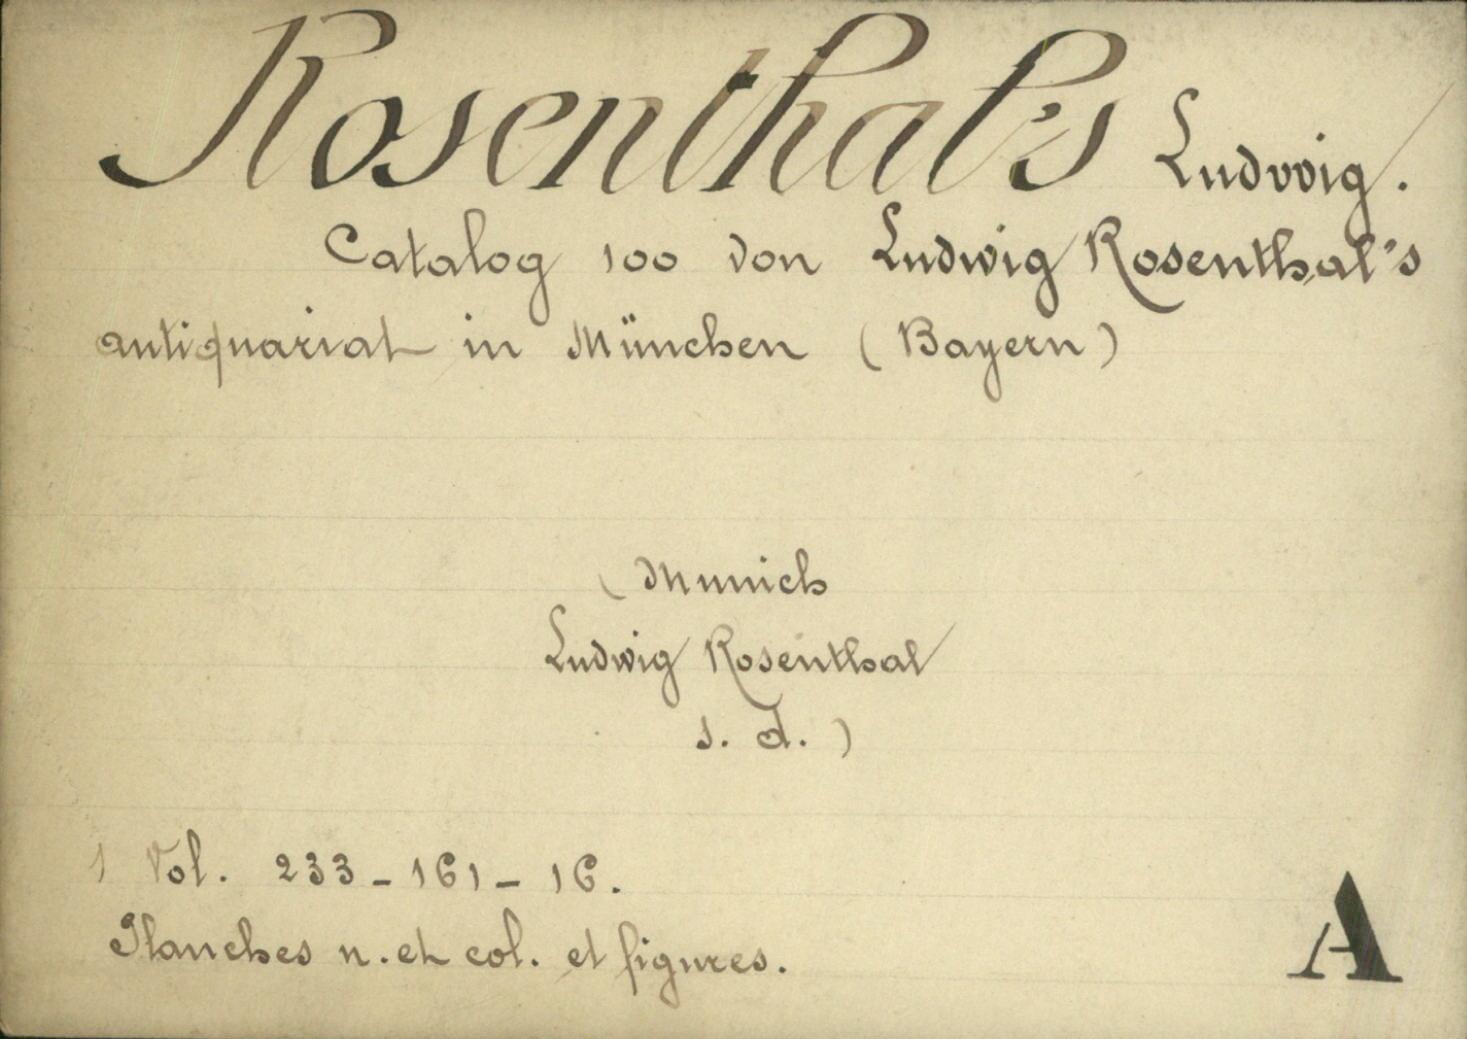 Rosenthal's Ludwig.
Catalog 100 von Ludwig Rosenthal's
antiquariat in München (Bayern)
(Munich
Ludwig Rosenthal
s. d.)
1 Vol. 233 - 161 - 16.
Planches n. et col. et figures.
A